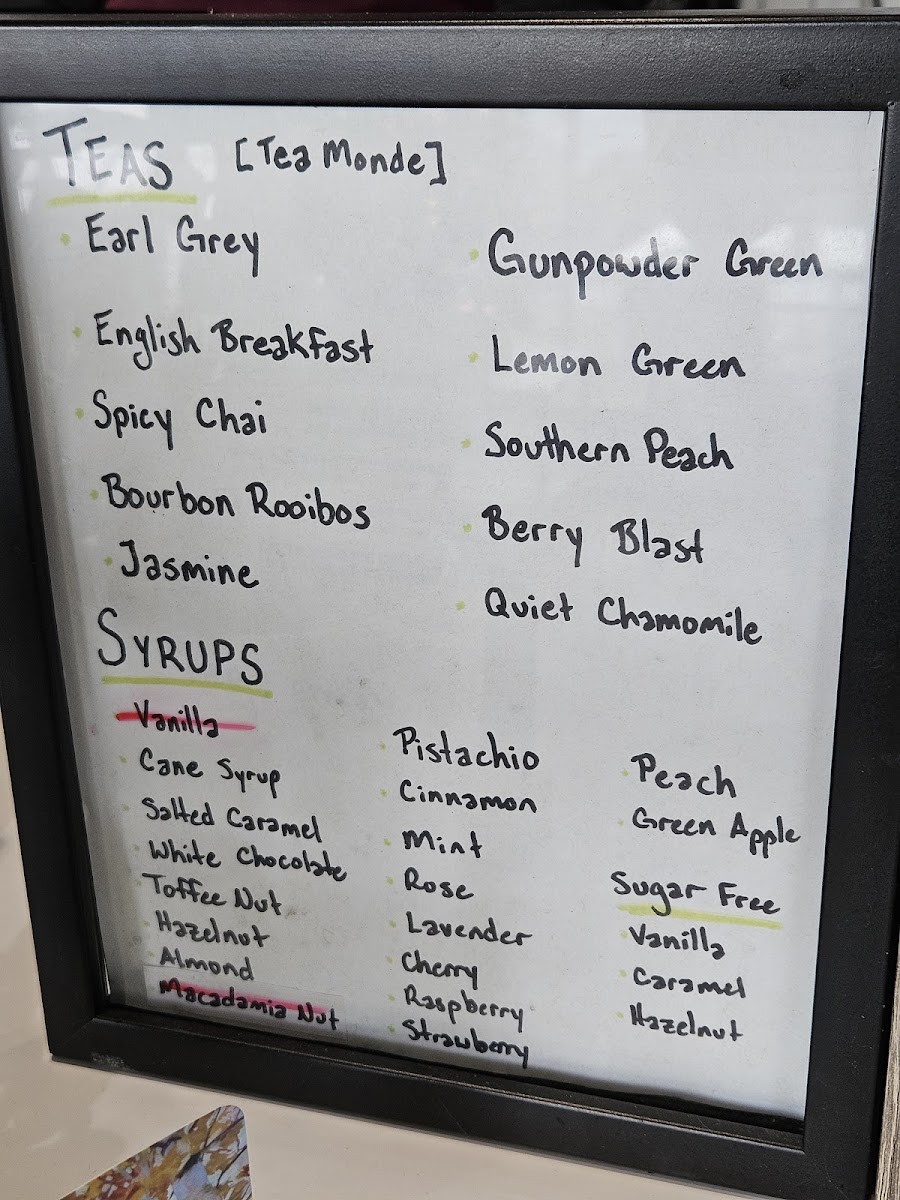 TEAS [Tea Monde]
Earl Grey
English Breakfast
Spicy Chai
Bourbon Rooibos
Jasmine
Gunpowder Green
Lemon Green
Southern Peach
Berry Blast
Quiet Chamomile
SYRUPS
Vanilla
Cane Syrup
Salted Caramel
White Chocolate
Toffee Nut
Hazelnut
Almond
Macadamia Nut
Pistachio
Cinnamon
Mint
Rose
Lavender
Cherry
Raspberry
Strawberry
Peach
Green Apple
Sugar Free
Vanilla
Caramel
Hazelnut